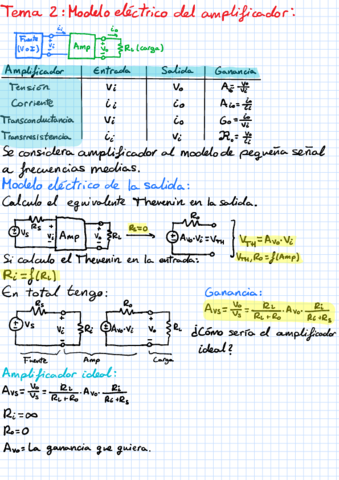 Tema 2: Modelo eléctrico del amplificador:
Fuente (V o I) ii Vi Amp io Vo RL (carga)
Amplificador Entrada Salida Ganancia
Tensión Vi Vo Av = Vo/Vi
Corriente ii io Aio = io/ii
Transconductancia Vi io Go = io/Vi
Transresistencia ii Vo Ro = Vo/ii
Se considera amplificador al modelo de pequeña señal
a frecuencias medias.
Modelo eléctrico de la salida:
Calculo el equivalente Thevenin en la salida.
VS RS Amp RL RL=∞ Ro Avo·Vi = VTH
VTH = Avo·Vi
VTH, Ro = f(Amp)
Si calculo el Thevenin en la entrada:
Ri = f(RL)
En total tengo:
VS RS Vi Ri Avo·Vi Ro Vo RL
Fuente Amp Carga
Ganancia:
AVS = Vo/VS = RL/(RL+Ro) · Avo · Ri/(Ri+RS)
¿Cómo sería el amplificador
ideal?
Amplificador ideal:
AVS = Vo/VS = RL/(RL+Ro) · Avo · Ri/(Ri+RS)
Ri = ∞
Ro = 0
Avo = La ganancia que quiera.